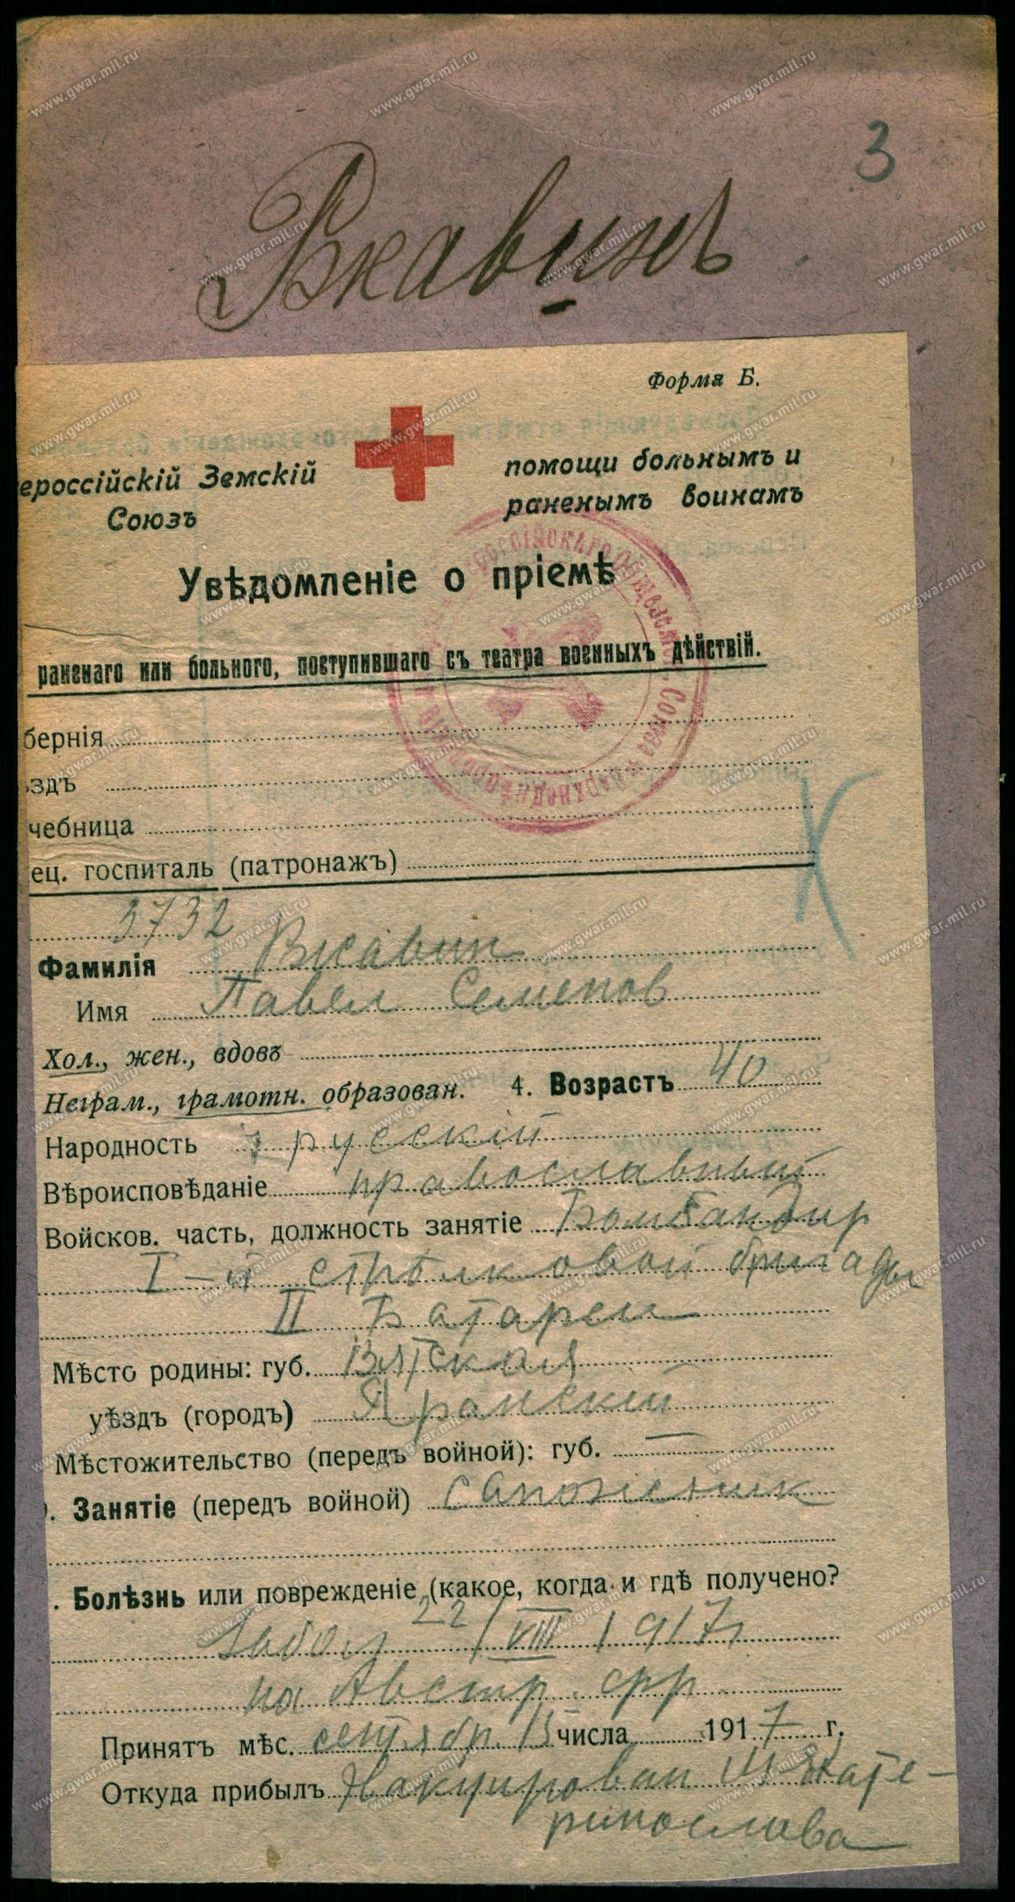 3
Вкавинъ
Форма Б.
ероссійскій Земскій
Союзъ
помощи больнымъ и
раненымъ воинамъ
Увѣдомленіе о пріемѣ
раненаго или больного, поступившаго съ театра военныхъ дѣйствій.
бернія
ѣздъ
чебница
ец. госпиталь (патронажъ)
3732
Фамилія Вкавин
Имя Павел Семенов
Хол., жен., вдовъ
Неграм., грамотн. образован. 4. Возрастъ 40
Народность русскій
Вѣроисповѣданіе православный
Войсков. часть, должность занятіе Бомбандир
I-й стрѣлковой бригады
II Батареи
Мѣсто родины: губ. Вятская
уѣздъ (городъ) Яранский
Мѣстожительство (передъ войной): губ. —
. Занятіе (передъ войной) сапожник
. Болѣзнь или поврежденіе (какое, когда и гдѣ получено?
Забол 22/VIII 1917г
на Австр. фр
Принятъ мѣс. сентябр. 15 числа 1917 г.
Откуда прибылъ Эвакуирован из Екате-
ринослава